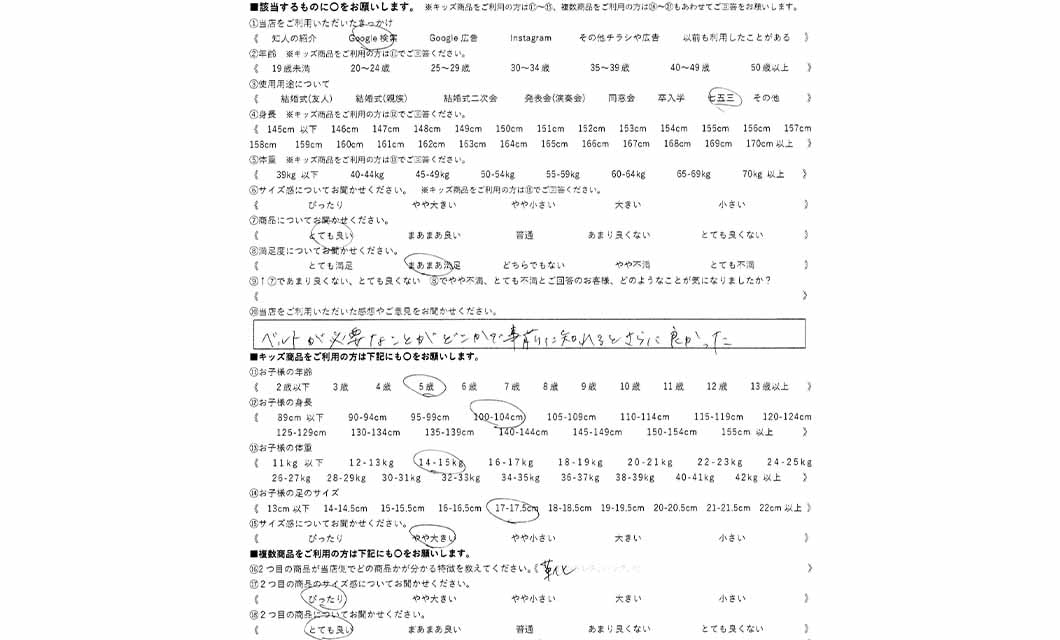 ■該当するものに〇をお願いします。 ※キッズ商品をご利用の方は⑪～⑮、複数商品をご利用の方は⑯～⑳もあわせてご回答をお願いします。
①当店をご利用いただいたきっかけ
《 知人の紹介 Google 検索 Google 広告 Instagram その他チラシや広告 以前も利用したことがある 》
②年齢 ※キッズ商品をご利用の方は⑪でご回答ください。
《 19歳未満 20～24歳 25～29歳 30～34歳 35～39歳 40～49歳 50歳以上 》
③使用用途について
《 結婚式(友人) 結婚式(親族) 結婚式二次会 発表会(演奏会) 同窓会 卒入学 七五三 その他 》
④身長 ※キッズ商品をご利用の方は⑫でご回答ください。
《 145cm 以下 146cm 147cm 148cm 149cm 150cm 151cm 152cm 153cm 154cm 155cm 156cm 157cm
158cm 159cm 160cm 161cm 162cm 163cm 164cm 165cm 166cm 167cm 168cm 169cm 170cm以上 》
⑤体重 ※キッズ商品をご利用の方は⑬でご回答ください。
《 39kg 以下 40-44kg 45-49kg 50-54kg 55-59kg 60-64kg 65-69kg 70kg 以上 》
⑥サイズ感についてお聞かせください。 ※キッズ商品をご利用の方は⑮でご回答ください。
《 ぴったり やや大きい やや小さい 大きい 小さい 》
⑦商品についてお聞かせください。
《 とても良い まあまあ良い 普通 あまり良くない とても良くない 》
⑧満足度についてお聞かせください。
《 とても満足 まあまあ満足 どちらでもない やや不満 とても不満 》
⑨↑⑦であまり良くない、とても良くない ⑧でやや不満、とても不満とご回答のお客様、どのようなことが気になりましたか？
《 》
⑩当店をご利用いただいた感想やご意見をお聞かせください。
ベルトが必要なことがどこかで事前に知れるとさらに良かった
■キッズ商品をご利用の方は下記にも〇をお願いします。
⑪お子様の年齢
《 2歳以下 3歳 4歳 5歳 6歳 7歳 8歳 9歳 10歳 11歳 12歳 13歳以上 》
⑫お子様の身長
《 89cm 以下 90-94cm 95-99cm 100-104cm 105-109cm 110-114cm 115-119cm 120-124cm
125-129cm 130-134cm 135-139cm 140-144cm 145-149cm 150-154cm 155cm 以上 》
⑬お子様の体重
《 11kg 以下 12-13kg 14-15kg 16-17kg 18-19kg 20-21kg 22-23kg 24-25kg
26-27kg 28-29kg 30-31kg 32-33kg 34-35kg 36-37kg 38-39kg 40-41kg 42kg 以上 》
⑭お子様の足のサイズ
《 13cm以下 14-14.5cm 15-15.5cm 16-16.5cm 17-17.5cm 18-18.5cm 19-19.5cm 20-20.5cm 21-21.5cm 22cm以上 》
⑮サイズ感についてお聞かせください。
《 ぴったり やや大きい やや小さい 大きい 小さい 》
■複数商品をご利用の方は下記にも〇をお願いします。
⑯2つ目の商品が当店側でどの商品かが分かる特徴を教えてください。《 革靴 》
⑰2つ目の商品のサイズ感についてお聞かせください。
《 ぴったり やや大きい やや小さい 大きい 小さい 》
⑱2つ目の商品についてお聞かせください。
《 とても良い まあまあ良い 普通 あまり良くない とても良くない 》